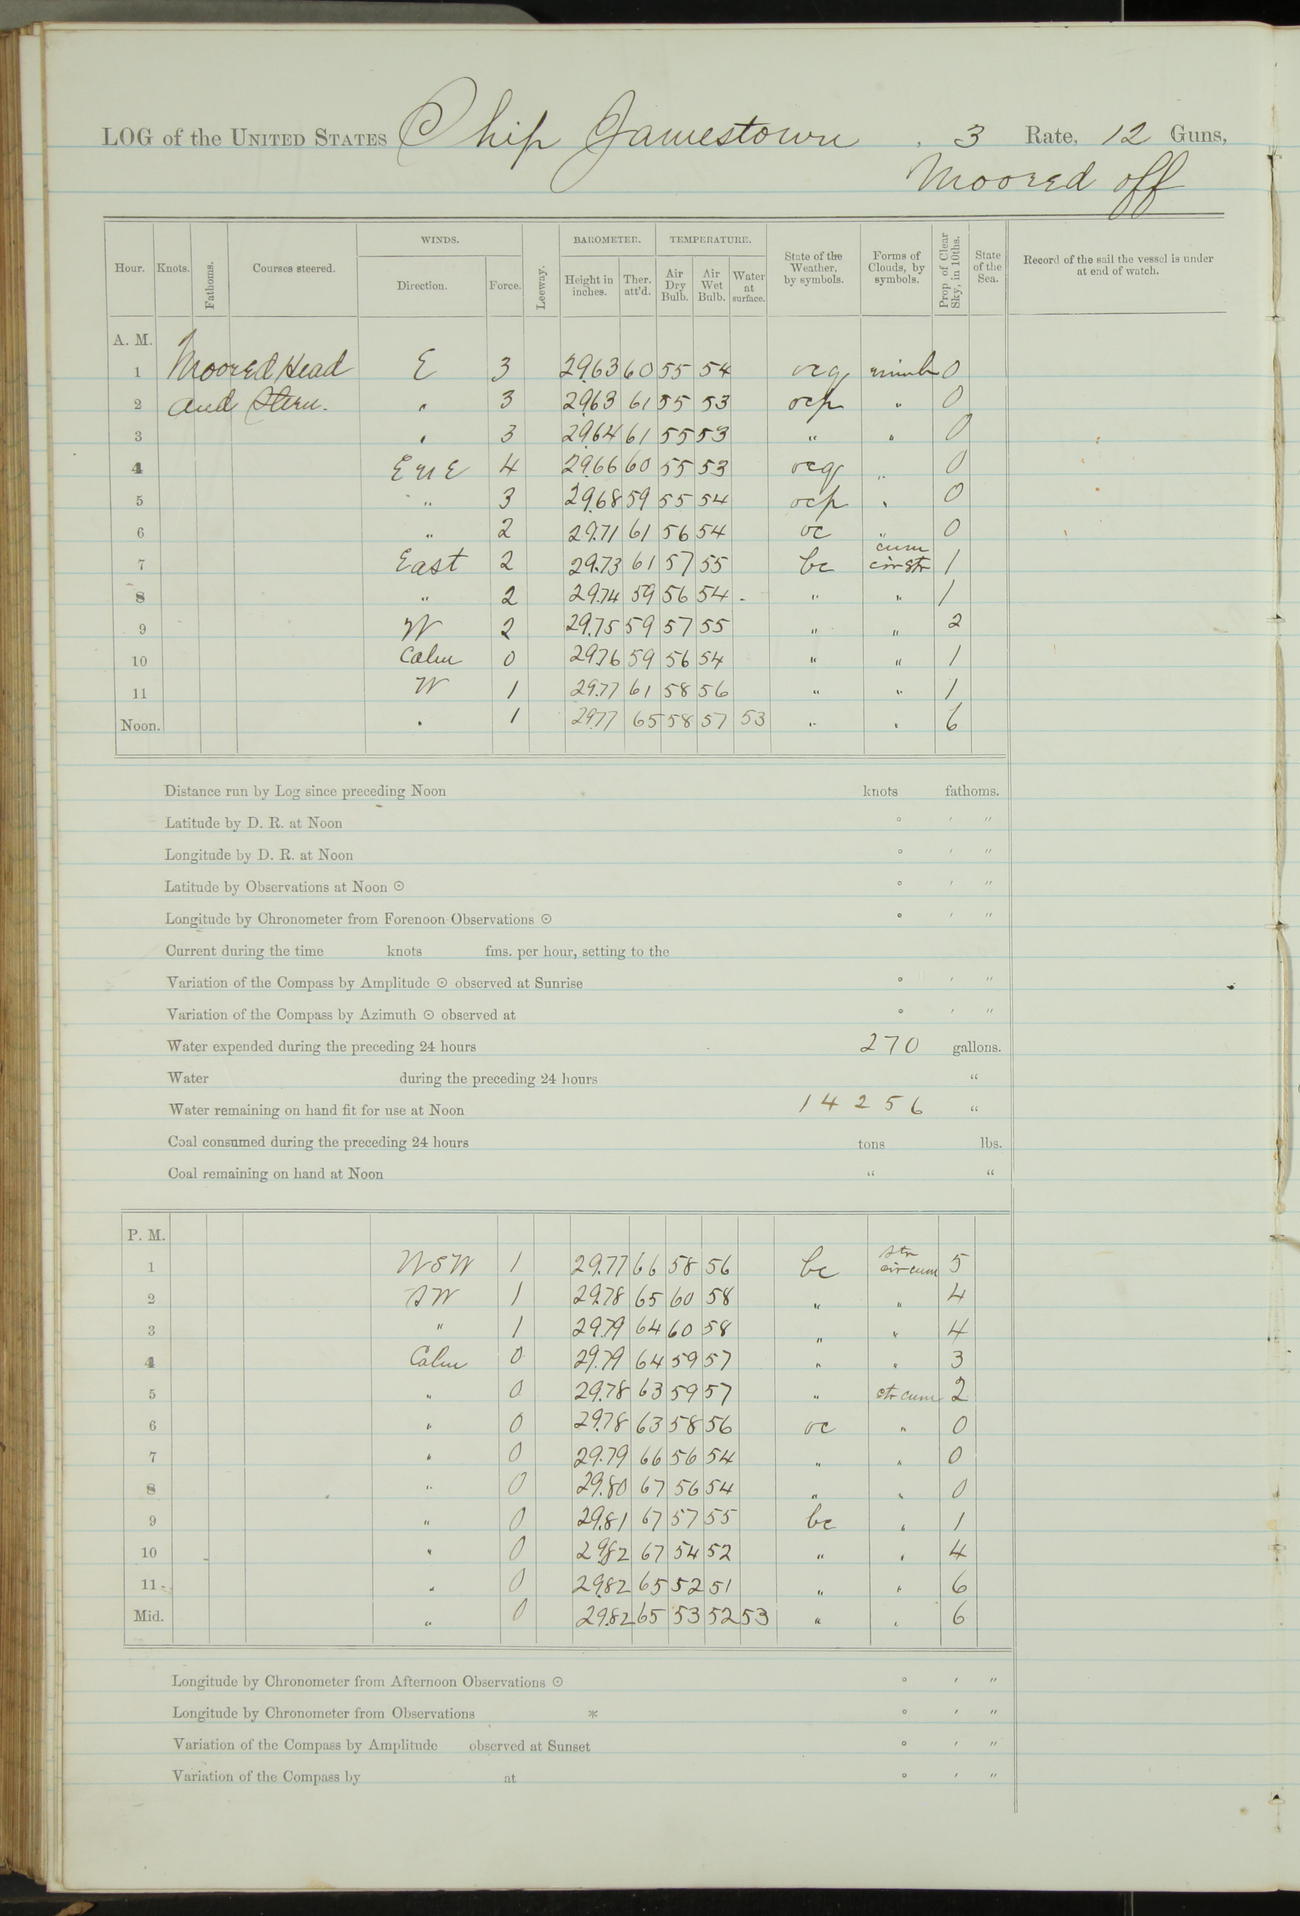 LOG of the UNITED STATES Ship Jamestown, 3 Rate, 12 Guns,
Moored off
Hour. Knots. Fathoms. Courses steered. WINDS. Direction. Force. Leeway. BAROMETER. Height in inches. Ther. att'd. TEMPERATURE. Air Dry Bulb. Air Wet Bulb. Water at surface. State of the Weather, by symbols. Forms of Clouds, by symbols. Prop. of Clear Sky, in 10ths. State of the Sea. Record of the sail the vessel is under at end of watch.
A. M.
1 Moored Head E 3 29.63 60 55 54 ocq nimb 0
2 and Stern. " 3 29.63 61 55 53 ocp " 0
3 " 3 29.64 61 55 53 " " 0
4 ENE 4 29.66 60 55 53 ocq " 0
5 " 3 29.68 59 55 54 ocp " 0
6 " 2 29.71 61 56 54 oc " 0
7 East 2 29.73 61 57 55 bc cum cir str 1
8 " 2 29.74 59 56 54 " " 1
9 W 2 29.75 59 57 55 " " 2
10 Calm 0 29.76 59 56 54 " " 1
11 W 1 29.77 61 58 56 " " 1
Noon. " 1 29.77 65 58 57 53 " " 6
Distance run by Log since preceding Noon knots fathoms.
Latitude by D. R. at Noon ° ′ ″
Longitude by D. R. at Noon ° ′ ″
Latitude by Observations at Noon ⊙ ° ′ ″
Longitude by Chronometer from Forenoon Observations ⊙ ° ′ ″
Current during the time knots fms. per hour, setting to the
Variation of the Compass by Amplitude ⊙ observed at Sunrise ° ′ ″
Variation of the Compass by Azimuth ⊙ observed at ° ′ ″
Water expended during the preceding 24 hours 270 gallons.
Water during the preceding 24 hours "
Water remaining on hand fit for use at Noon 14256 "
Coal consumed during the preceding 24 hours tons lbs.
Coal remaining on hand at Noon " "
P. M.
1 WSW 1 29.77 66 58 56 bc str cir cum 5
2 SW 1 29.78 65 60 58 " " 4
3 " 1 29.79 64 60 58 " " 4
4 Calm 0 29.79 64 59 57 " " 3
5 " 0 29.78 63 59 57 " str cum 2
6 " 0 29.78 63 58 56 oc " 0
7 " 0 29.79 66 56 54 " " 0
8 " 0 29.80 67 56 54 " " 0
9 " 0 29.81 67 57 55 bc " 1
10 " 0 29.82 67 54 52 " " 4
11 " 0 29.82 65 52 51 " " 6
Mid. " 0 29.82 65 53 52 53 " " 6
Longitude by Chronometer from Afternoon Observations ⊙ ° ′ ″
Longitude by Chronometer from Observations * ° ′ ″
Variation of the Compass by Amplitude observed at Sunset ° ′ ″
Variation of the Compass by at ° ′ ″